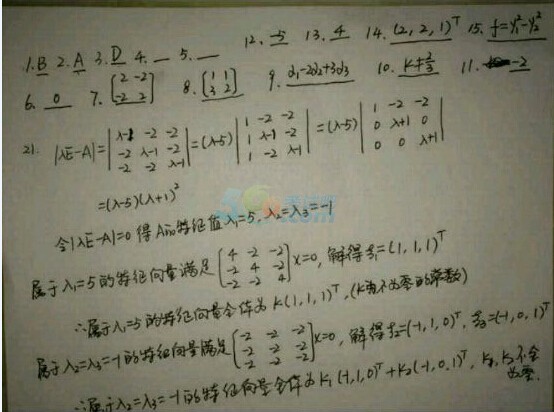 12. -5 13. 4 14. (2, 2, 1)ᵀ 15. f=y₁²-y₂²
1. B 2. A 3. D 4. _ 5. _
6. 0 7. [2 -2; -2 2] 8. [1 1; 3 2] 9. α₁-2α₂+3α₃ 10. k≠2/3 11. -2
21. |λE-A| = |λ-1 -2 -2; -2 λ-1 -2; -2 -2 λ-1| = (λ-5) |1 -2 -2; 1 λ-1 -2; 1 -2 λ-1| = (λ-5) |1 -2 -2; 0 λ+1 0; 0 0 λ+1|
=(λ-5)(λ+1)²
令|λE-A|=0 得A的特征值λ₁=5, λ₂=λ₃=-1
属于λ₁=5的特征向量满足 [4 -2 -2; -2 4 -2; -2 -2 4] x=0, 解得ξ₁=(1, 1, 1)ᵀ
∴属于λ₁=5的特征向量全体为 k(1, 1, 1)ᵀ, (k为不为零的常数)
属于λ₂=λ₃=-1的特征向量满足 [-2 -2 -2; -2 -2 -2; -2 -2 -2] x=0, 解得ξ₂=(-1, 1, 0)ᵀ, ξ₃=(-1, 0, 1)ᵀ
∴属于λ₂=λ₃=-1的特征向量全体为 k₁(-1, 1, 0)ᵀ+k₂(-1, 0, 1)ᵀ, k₁, k₂不全为零.